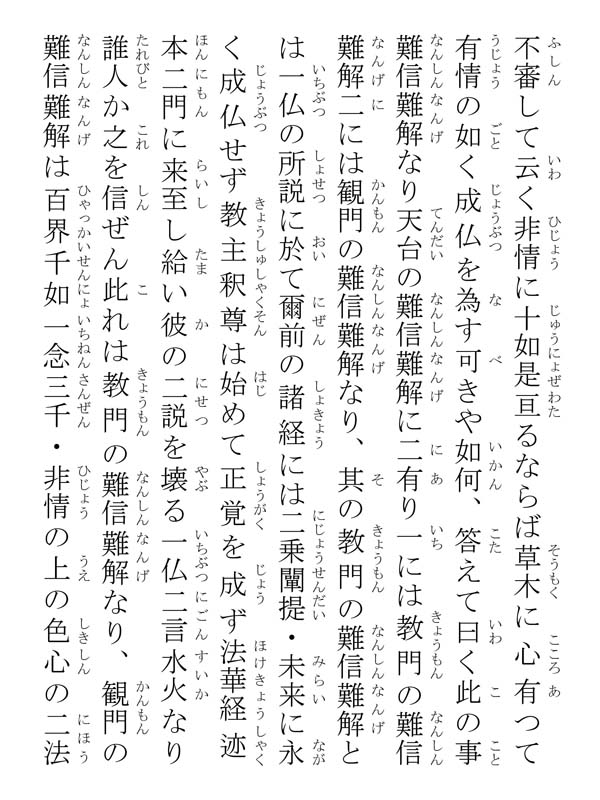 不審して云く非情に十如是亘るならば草木に心有つて
有情の如く成仏を為す可きや如何、答えて曰く此の事
難信難解なり天台の難信難解に二有り一には教門の難信
難解二には観門の難信難解なり、其の教門の難信難解と
は一仏の所説に於て爾前の諸経には二乗闡提・未来に永
く成仏せず教主釈尊は始めて正覚を成ず法華経迹
本二門に来至し給い彼の二説を壊る一仏二言水火なり
誰人か之を信ぜん此れは教門の難信難解なり、観門の
難信難解は百界千如一念三千・非情の上の色心の二法